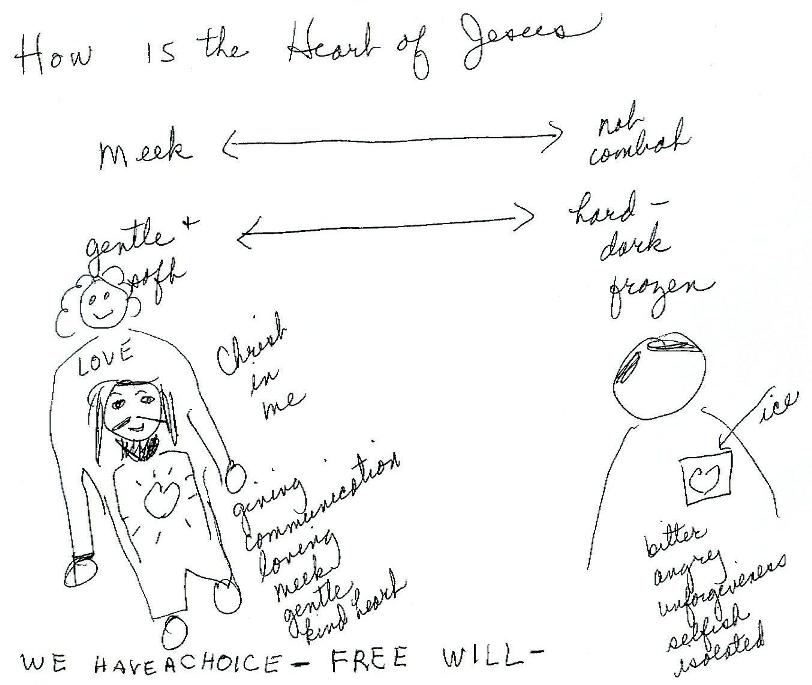 How is the Heart of Jesus
Meek
not
combat
gentle +
soft
hard -
dark
frozen
LOVE
Christ
in
me
giving
communication
loving
meek
gentle
kind heart
ice
bitter
angry
unforgiveness
selfish
isolated
WE HAVE A CHOICE - FREE WILL -